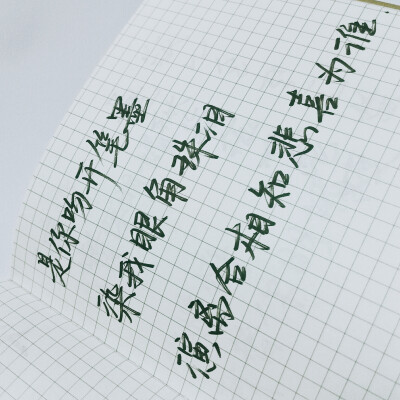 是你吻开笔墨
染我眼角珠泪
演离合相知悲喜为谁